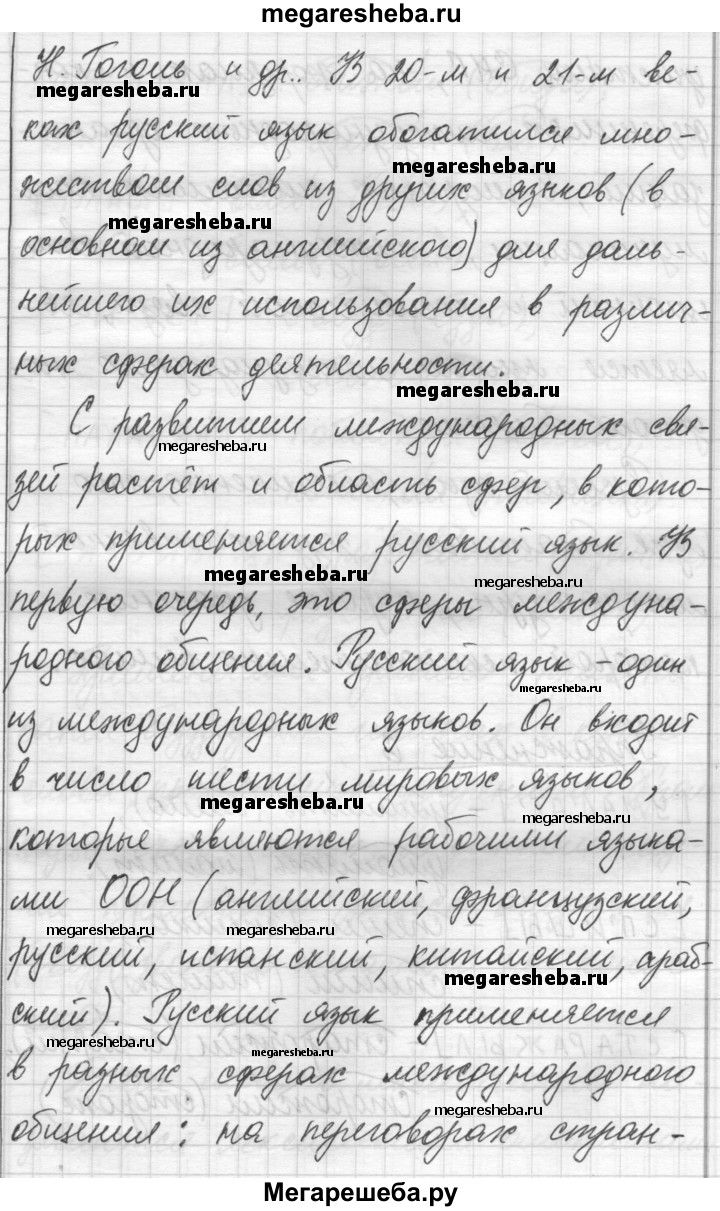 megaresheba.ru
Н. Гоголь и др.. В 20-м и 21-м ве-
megaresheba.ru
ках русский язык обогатился мно-
megaresheba.ru
жеством слов из других языков (в
megaresheba.ru
основном из английского) для даль-
нейшего их использования в различ-
ных сферах деятельности.
megaresheba.ru
С развитием международных свя-
megaresheba.ru
зей растёт и область сфер, в кото-
рых применяется русский язык. В
megaresheba.ru
megaresheba.ru
первую очередь, это сферы междуна-
родного общения. Русский язык - один
megaresheba.ru
из международных языков. Он входит
в число шести мировых языков,
megaresheba.ru
megaresheba.ru
которые являются рабочими языка-
ми ООН (английский, французский,
megaresheba.ru
megaresheba.ru
русский, испанский, китайский, араб-
megaresheba.ru
ский). Русский язык применяется
megaresheba.ru
в разных сферах международного
megaresheba.ru
общения: на переговорах стран-
Мегарешеба.ру